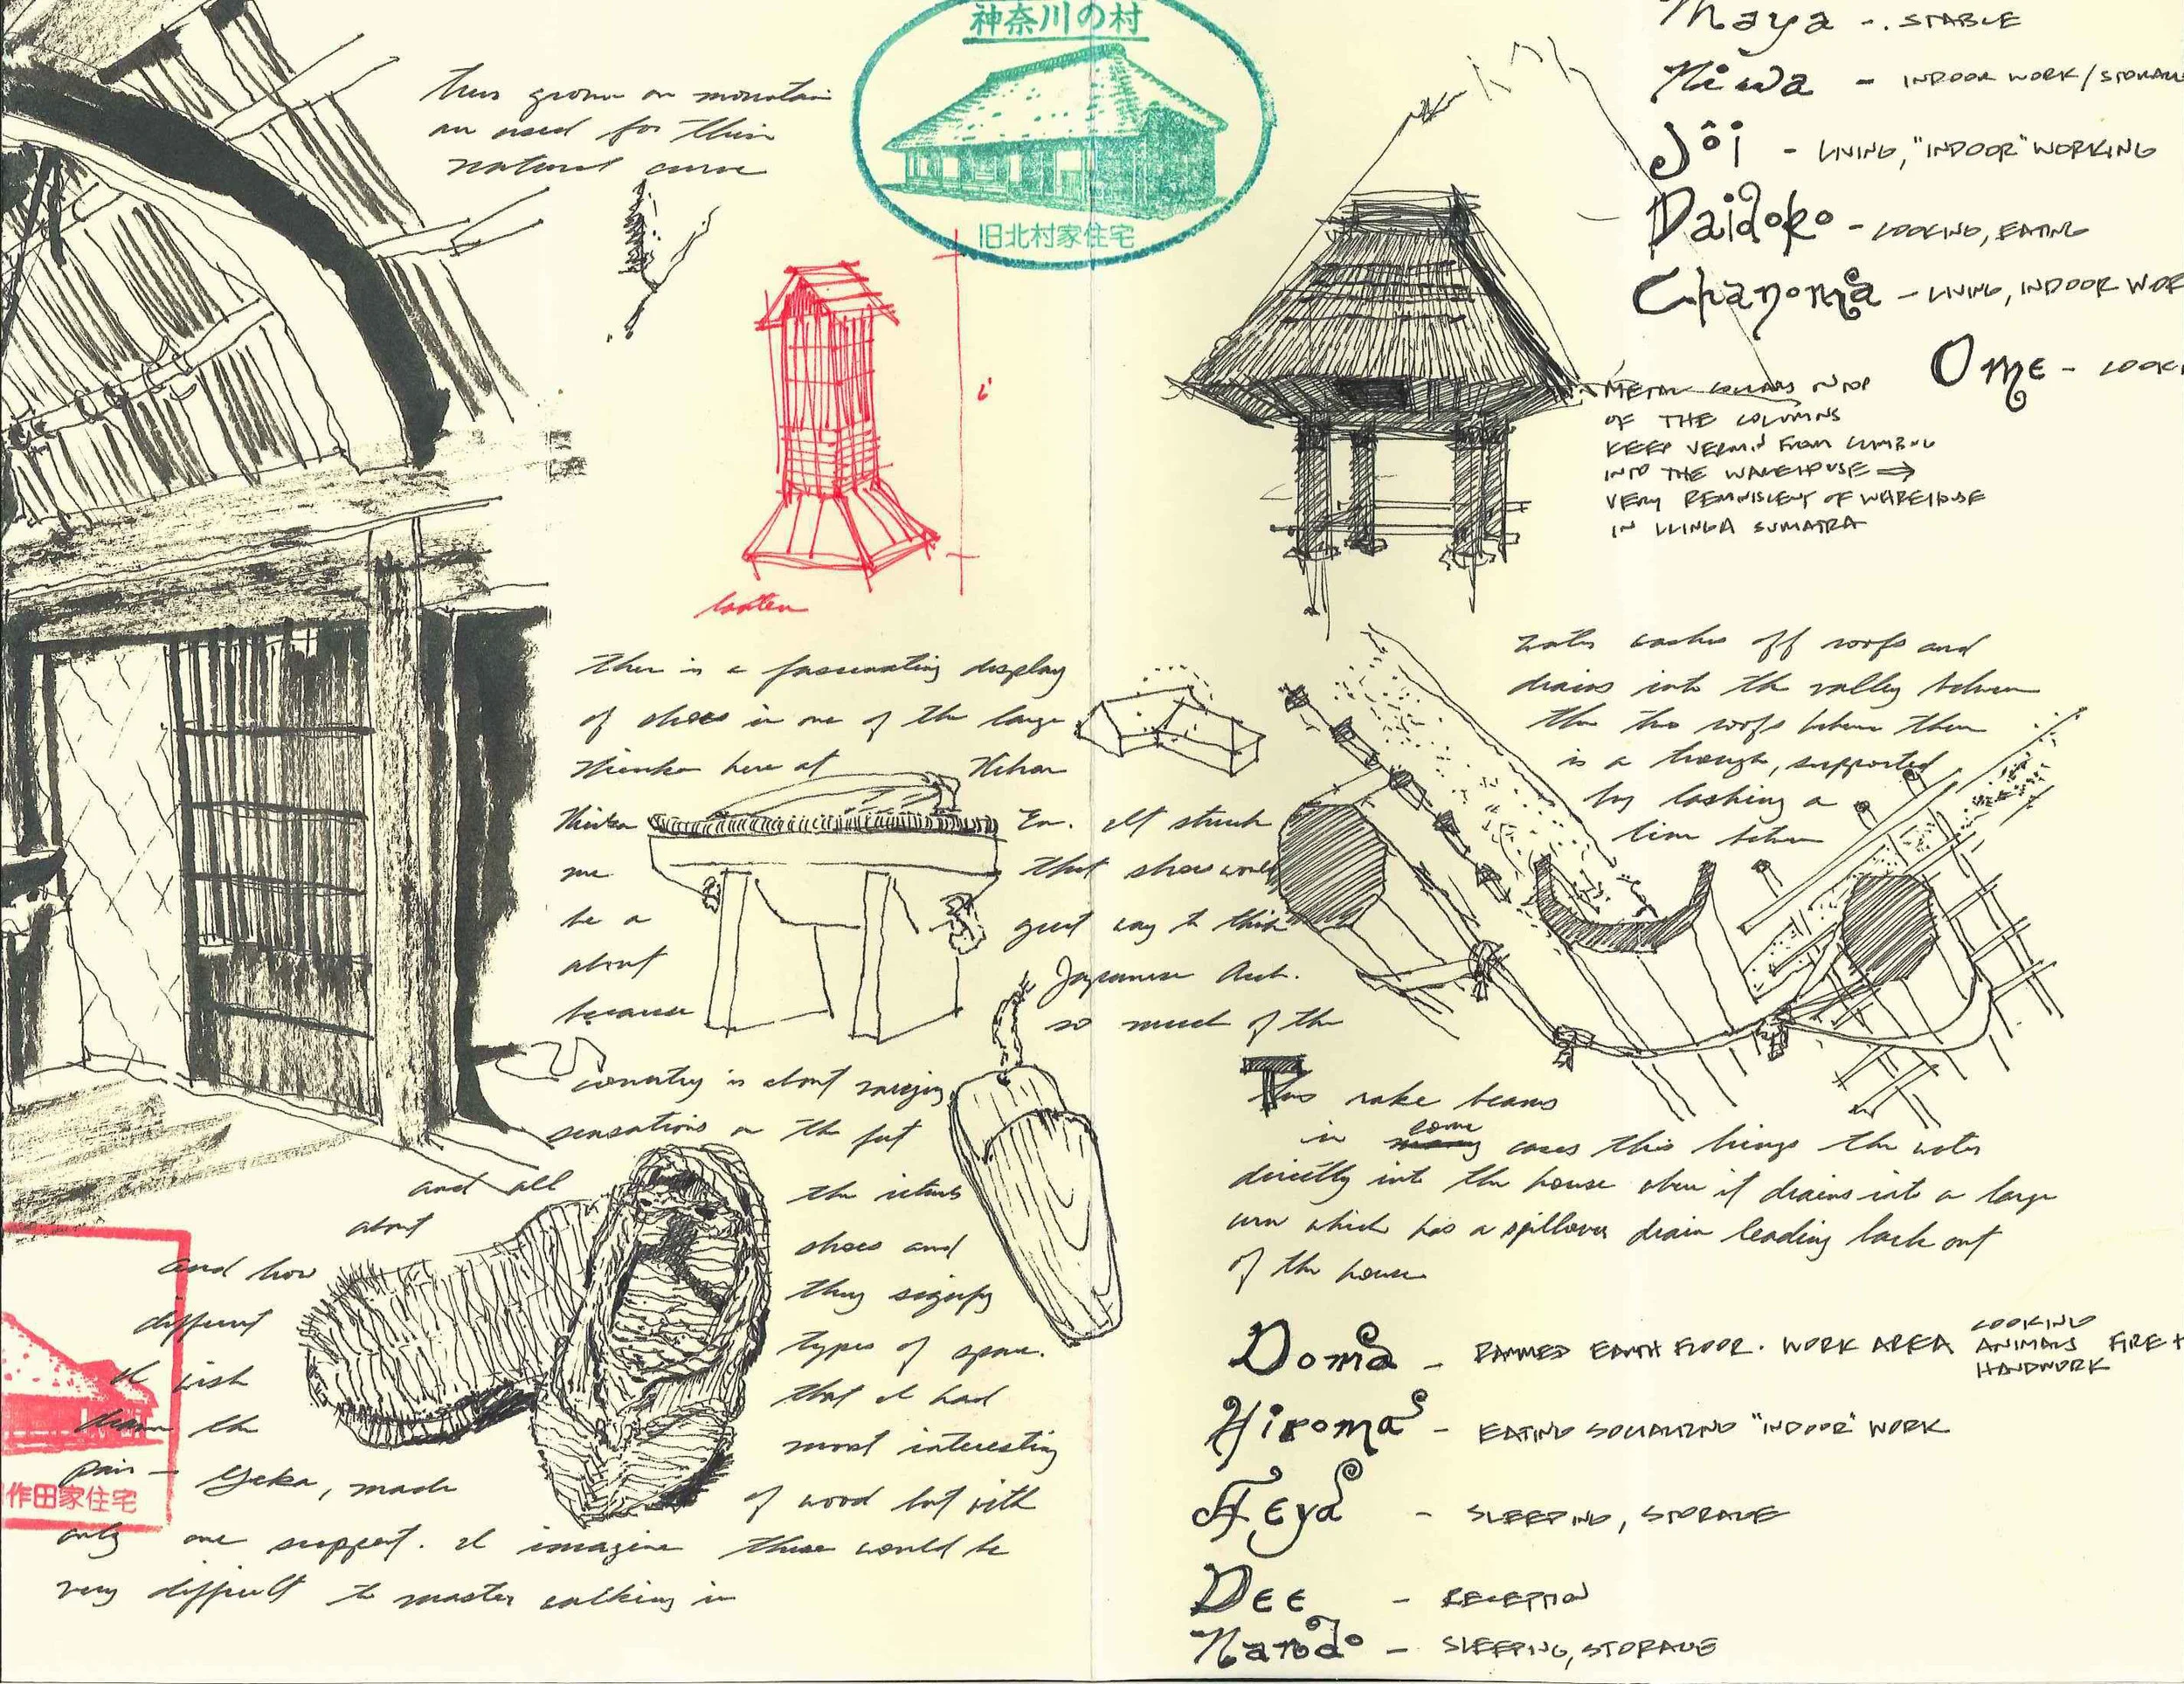 神奈川の村
旧北村家住宅
trees grown on mountain
are used for their
natural curve
lantern
there is a fascinating display
of shoes in one of the large
Minka here at Nihon
Minka En. It struck
me that shoes would
be a great way to think
about Japanese Arch.
because so much of the
country is about varying
sensations on the feet
and all the rituals
about shoes and
and how they signify
different types of space.
I wish that I had
drawn the most interesting
pair - Geka, made of wood but with
only one support. I imagine these would be
very difficult to master walking in
作田家住宅
Maya - STABLE
Niwa - INDOOR WORK/STORAGE
Jôi - LIVING, "INDOOR" WORKING
Daidoko - COOKING, EATING
Chanoma - LIVING, INDOOR WOR
Ome - COOK
METAL COLLARS ON TOP
OF THE COLUMNS
KEEP VERMIN FROM CLIMBING
INTO THE WAREHOUSE →
VERY REMINISCENT OF WAREHOUSE
IN SUMATRA
water washes off roofs and
drains into the valley between
the two roofs between them
is a trough, supported
by lashing a
line between
Two rake beams
in some cases this brings the water
directly into the house where it drains into a large
urn which has a spillover drain leading back out
of the house
Doma - RAMMED EARTH FLOOR. WORK AREA COOKING ANIMALS FIRE + HANDWORK
Hiroma - EATING SOCIALIZING "INDOOR" WORK
Heya - SLEEPING, STORAGE
Dee - RECEPTION
Nando - SLEEPING, STORAGE